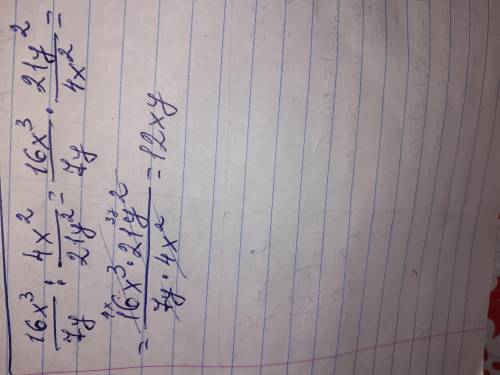 16x³/7y : 4x²/21y² = 16x³/7y · 21y²/4x² =
= 4x 3y 16x³ · 21y²/7y · 4x² = 12xy